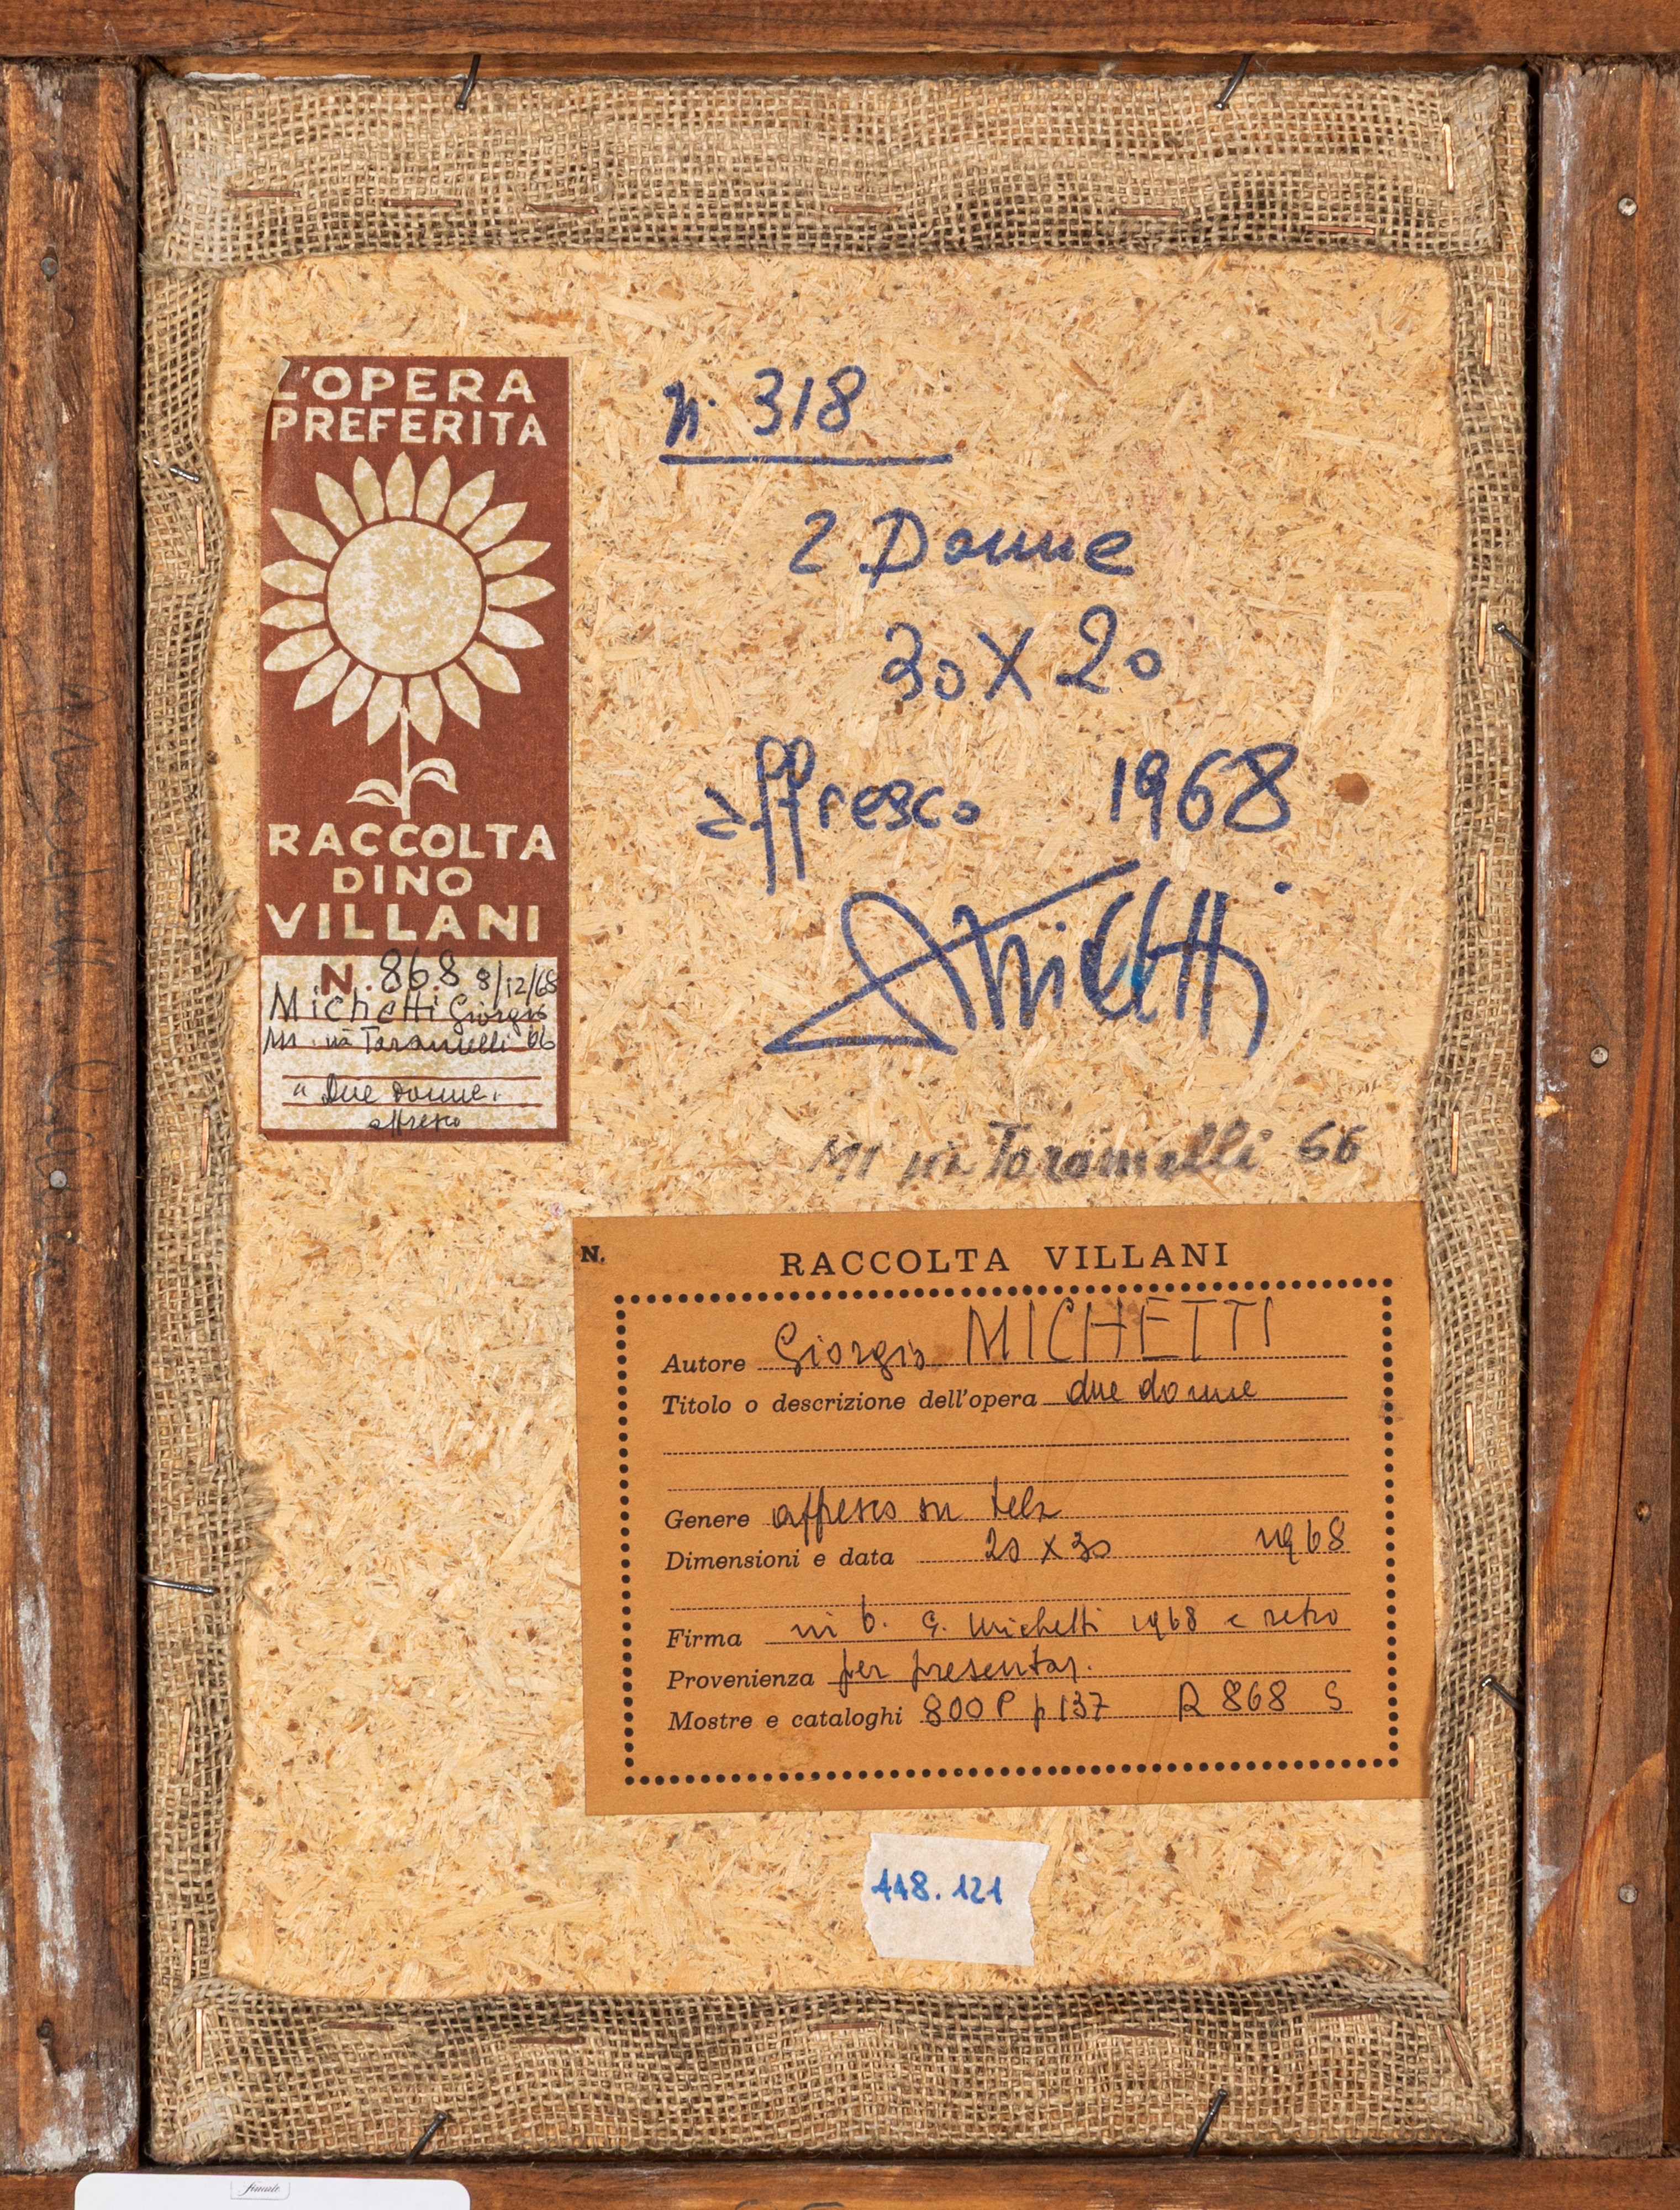 L'OPERA
PREFERITA
RACCOLTA
DINO
VILLANI
N. 868 8/12/68
Michetti Giorgio
MI via Taramelli 66
"Due donne"
affresco
N. 318
2 Donne
30 X 20
affresco 1968
Michetti
MI via Taramelli 66
N. RACCOLTA VILLANI
Autore Giorgio MICHETTI
Titolo o descrizione dell'opera due donne
Genere affresco su tela
Dimensioni e data 20 x 30 1968
Firma in b. G. Michetti 1968 e retro
Provenienza per presentaz.
Mostre e cataloghi 800 P p 137 R 868 S
118.121